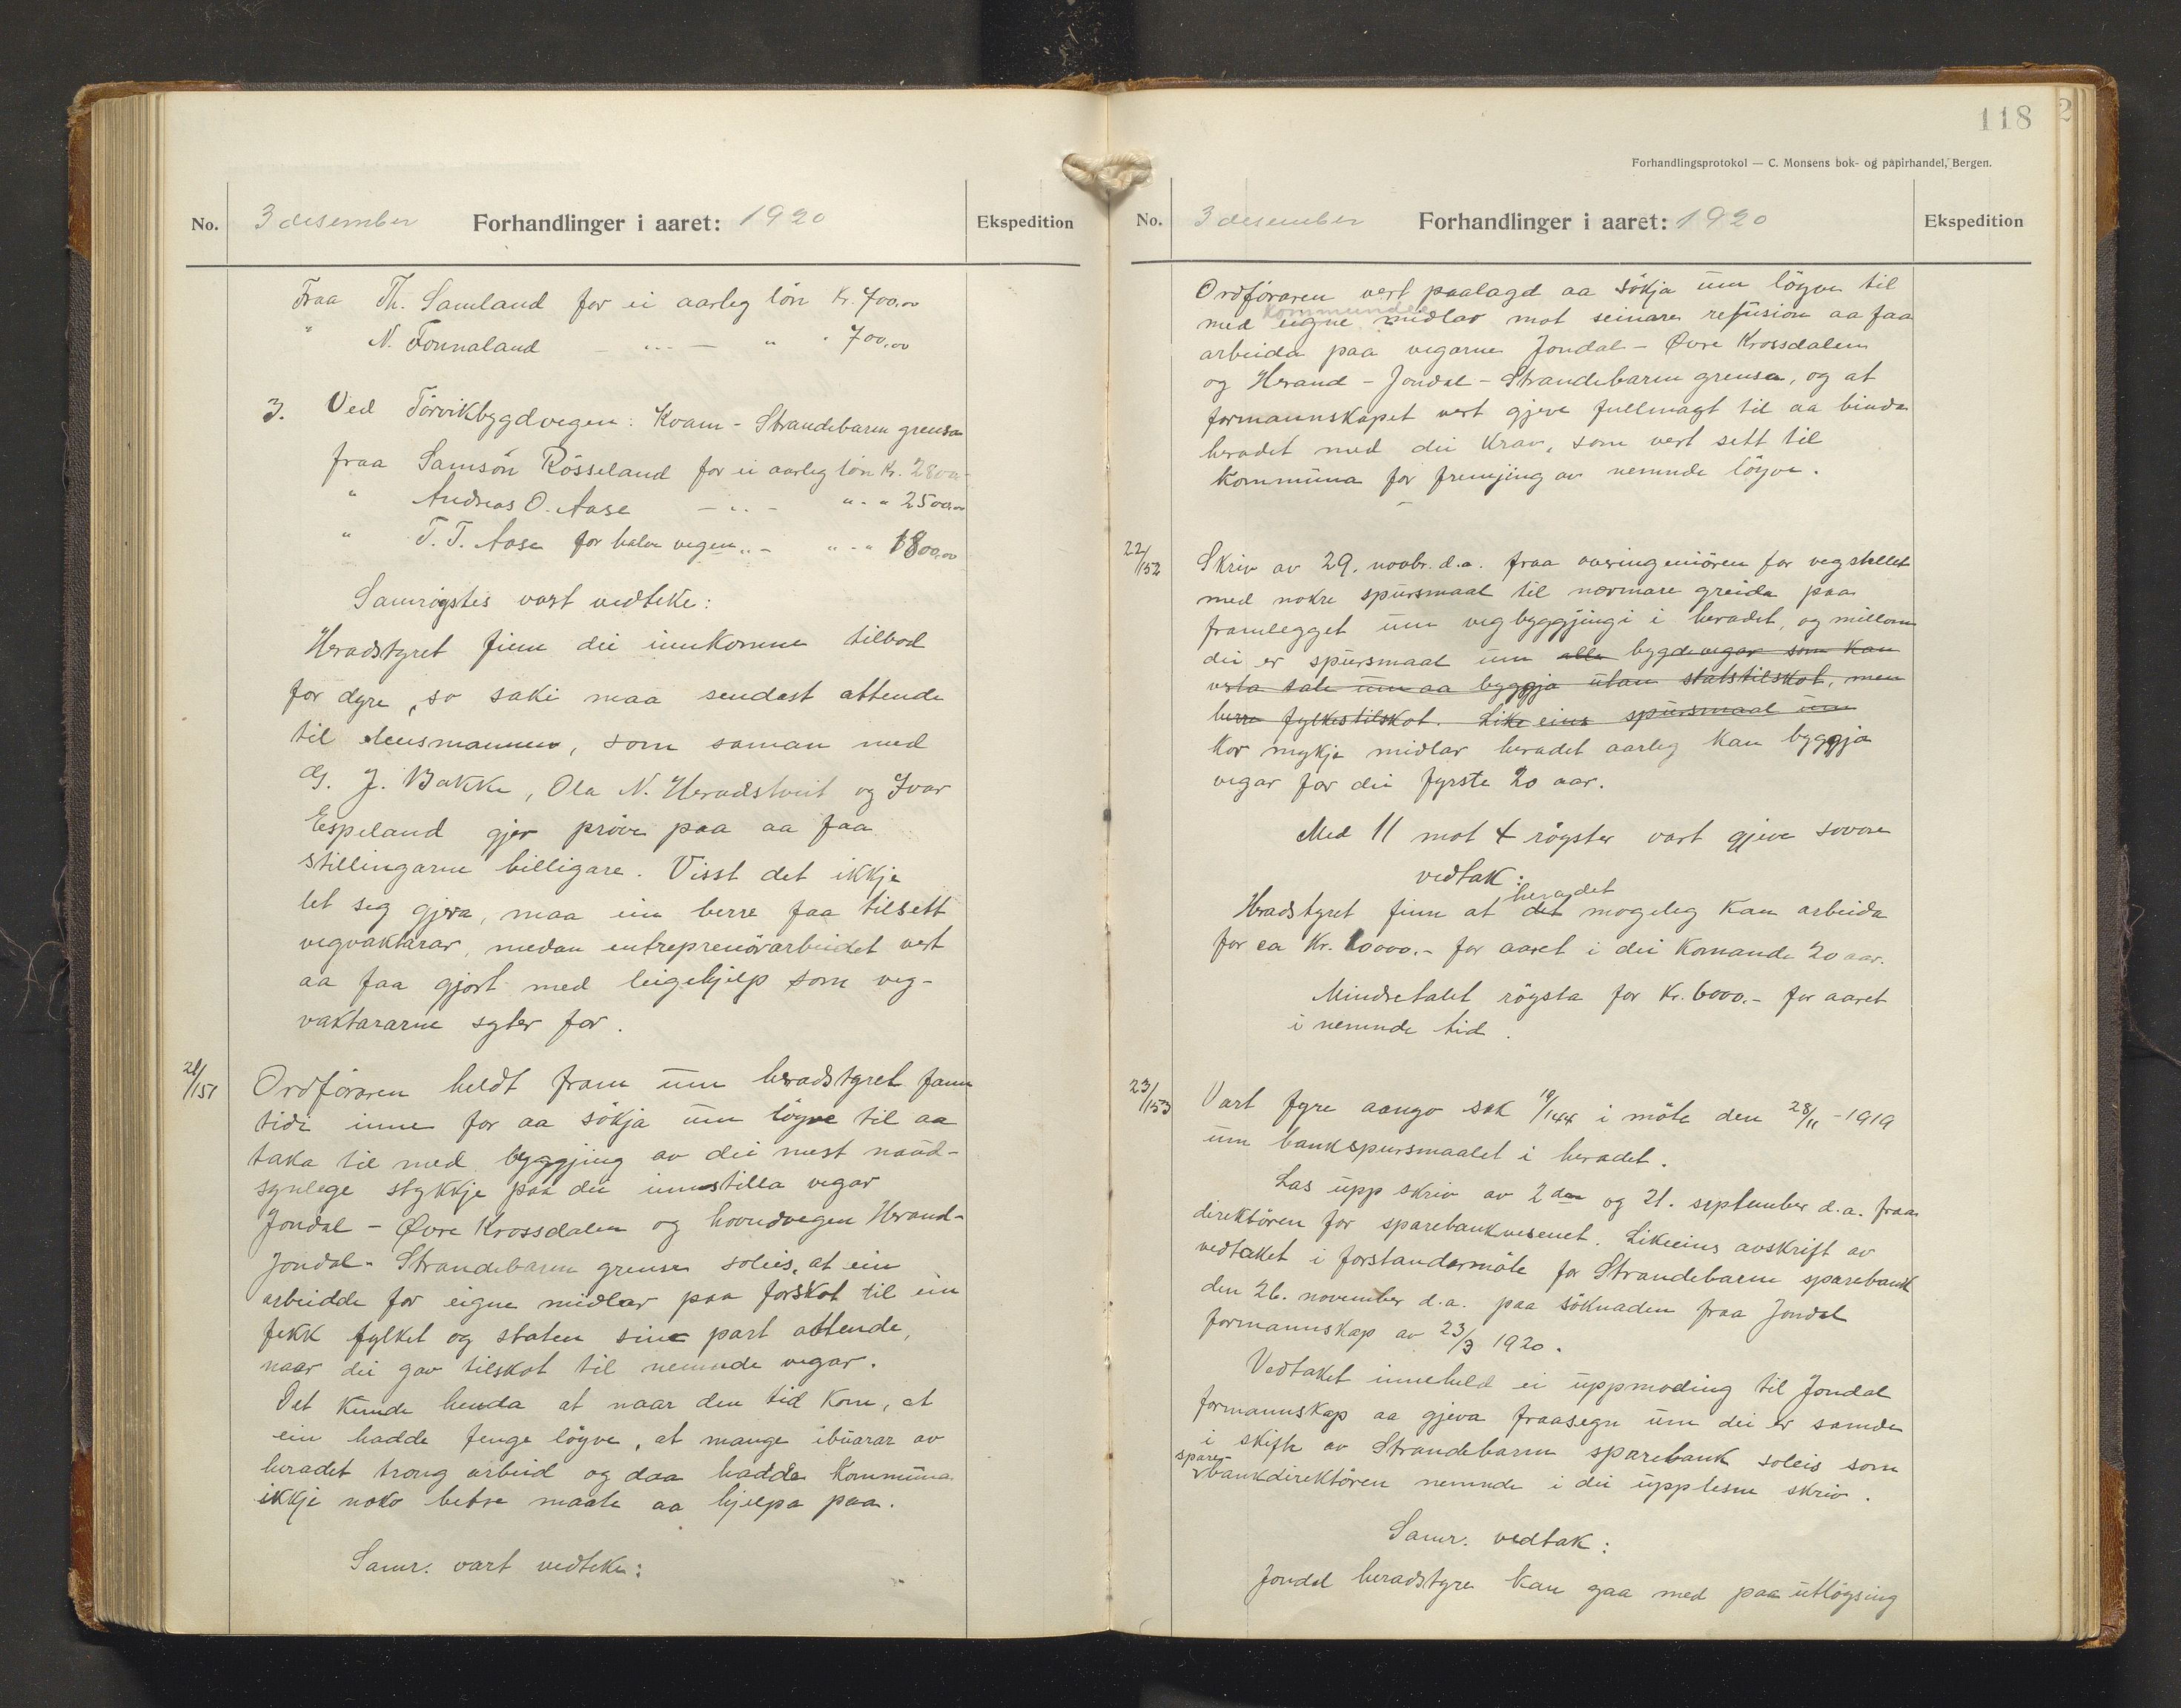 No. 3 desember Forhandlinger i aaret: 1920 Ekspedition
Fraa Th. Samland for ei aarleg lön Kr. 700,00
" N. Fonnaland — „ — „ „ 700,00
3. Ved Törvikbygdvegen: Kvam - Strandebarm grensa
fraa Samsön Rösseland for ei aarleg lön Kr. 2800
" Andreas O. Aase — „ — „ - „ 2500,00
" T. T. Aase for halve vegen „ — „ - „ 1800,00
Samrøystes vart vedteke:
Heradstyret finn dei innkomne tilbod
for dyre, so saki maa sendast attende
til lensmannen, som saman med
G. J. Bakke, Ola N. Heradstveit og Ivar
Espeland gjer pröve paa aa faa
stillingarne billigare. Visst det ikkje
let seg gjera, maa ein berre faa tilsett
vegvaktarar, medan entreprenörarbeidet vert
aa faa gjort med leigehjelp som veg-
vaktararne syter for.
21/151 Ordföraren heldt fram um heradstyret fann
tidi inne for aa sökja um löyve til aa
taka til med byggjing av dei mest naud-
synlege stykkje paa dei innstilla vegar
Jondal - Øvre Krossdalen og hovudvegen Herand-
Jondal - Strandebarm grensa soleis, at ein
arbeidde for eigne midlar paa forskot til ein
fekk fylket og staten sine part attende,
naar dei gav tilskot til nemnde vegar.
Det kunde henda at naar den tid kom, at
ein hadde fenge löyve, at mange ibuarar av
heradet trong arbeid og daa hadde kommuna
ikkje noko betre maate aa hjelpa paa.
Samr. vart vedteke:
118
Forhandlingsprotokol — C. Monsens bok- og papirhandel, Bergen.
No. 3 desember Forhandlinger i aaret: 1920 Ekspedition
Ordföraren vert paalagd aa sökja um löyve til
kommunale
med eigne midlar mot seinare refusion aa faa
arbeida paa vegarne Jondal - Øvre Krossdalen
og Herand - Jondal - Strandebarm grensa, og at
formannskapet vert gjeve fullmagt til aa binda
heradet med dei krav, som vert sett til
kommuna for fremjing av nemnde löyve.
22/152 Skriv av 29. novbr. d.a. fraa overingeniören for vegstellet
med nokre spursmaal til nærmare greida paa
framlegget um vegbyggjingi i heradet, og millom
dei er spursmaal um alle bygdevegar som kan
verta tale um aa byggja utan statstilskot, men
berre fylkestilskot. Like eins spursmaal um
kor mykje midlar heradet aarleg kan byggja
vegar for dei fyrste 20 aar.
Med 11 mot 4 röyster vart gjeve sovore
vedtak:
heradet
Heradstyret finn at det mogeleg kan arbeida
for ca Kr. 10000.- for aaret i dei komande 20 aar.
Mindretalet röysta for Kr. 6000.- for aaret
i nemnde tid.
23/153 Vart fyre aango sak 19/144 i möte den 28/11 - 1919
um bankspursmaalet i heradet.
Las upp skriv av 2den og 21. september d.a. fraa
direktören for sparebankvesenet. Likeeins avskrift av
vedtaket i forstandarmöte for Strandebarm sparebank
den 26. november d.a. paa söknaden fraa Jondal
formannskap av 23/3 1920.
Vedtaket inneheld ei uppmoding til Jondal
formannskap aa gjeva fraasegn um dei er samde
i skifte av Strandebarm sparebank soleis som
spare-
bankdirektören nemnde i dei upplesne skriv.
Samr. vedtak:
Jondal heradstyre kan gaa med paa utløysing